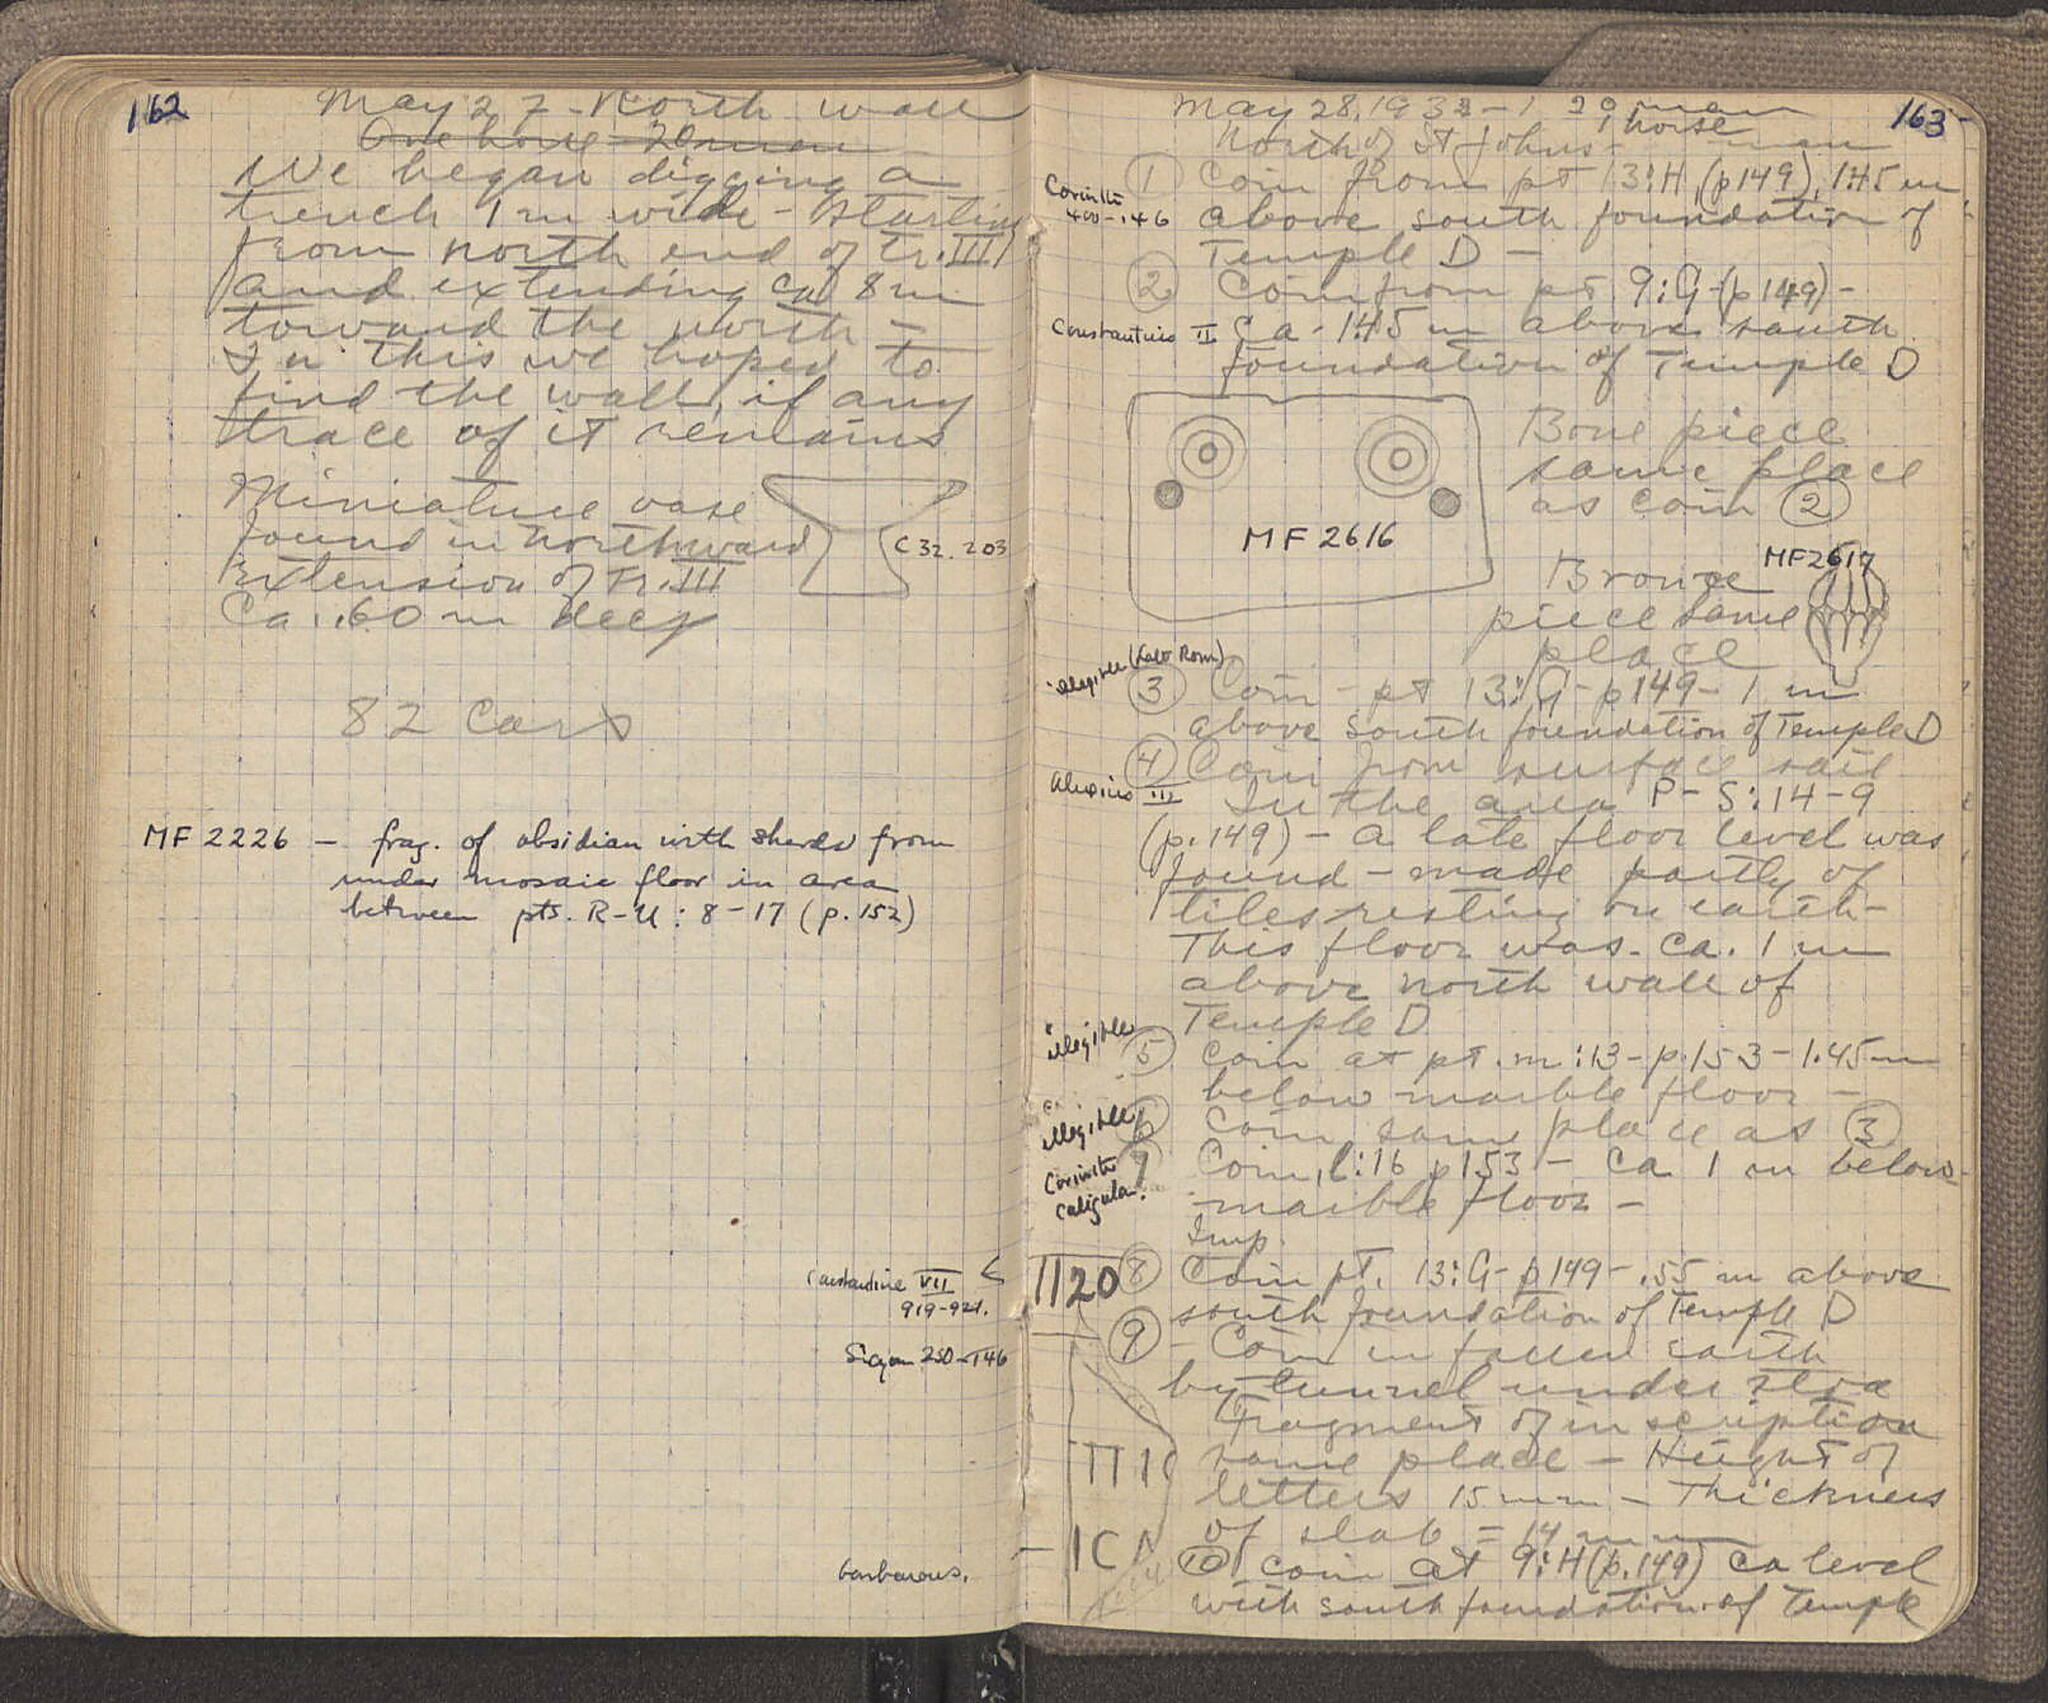 162
May 27 - North wall
One horse 20 men
We began digging a
trench 1 m wide - starting
from north end of Tr. III
and extending ca 8 m
toward the north -
In this we hoped to
find the wall, if any
trace of it remains
Miniature vase
found in northward
extension of Tr. III
Ca. .60 m deep
C 32.203
82 Cars
MF 2226 - frag. of obsidian with sherds from
under mosaic floor in area
between pts. R-U : 8-17 (p. 152)
Constantine VII
919-921.
Sicyon 250-146
barbarous.
163
May 28, 1932 - 1 20 men
1 horse
North of St Johns - man
Corinth
400-146
① Coin from pt 13:H (p149), 1.45 m
above south foundation of
Temple D -
② Coin from pt 9:G (p149) -
Constantius II
Ca. 1.45 m above south
foundation of Temple D
Bone piece
same place
as coin ②
MF 2616
MF2617
Bronze
piece same
place
illegible (Late Rom)
③ Coin - pt 13:G - p149 - 1 m
above south foundation of Temple D
④ Coin from surface soil
Alexius III
In the area P-S:14-9
(p.149) - a late floor level was
found - made partly of
tiles resting on earth -
This floor was ca. 1 m
above north wall of
Temple D
illegible
⑤ Coin at pt. m:13 - p.153 - 1.45 m
below marble floor -
illegible
⑥ Coin same place as ③
Corinth
Caligula.
⑦ Coin, l:16 p153 - ca 1 m below
marble floor -
Imp.
⑧ Coin pt. 13:G - p149 - .55 m above
south foundation of Temple D
⑨ - Coin in fallen earth
by tunnel under stoa
Fragment of inscription
same place - Height of
letters 15 mm - Thickness
of slab = 14 mm
⑩ coin at 9:H (p.149) ca level
with south foundation of Temple